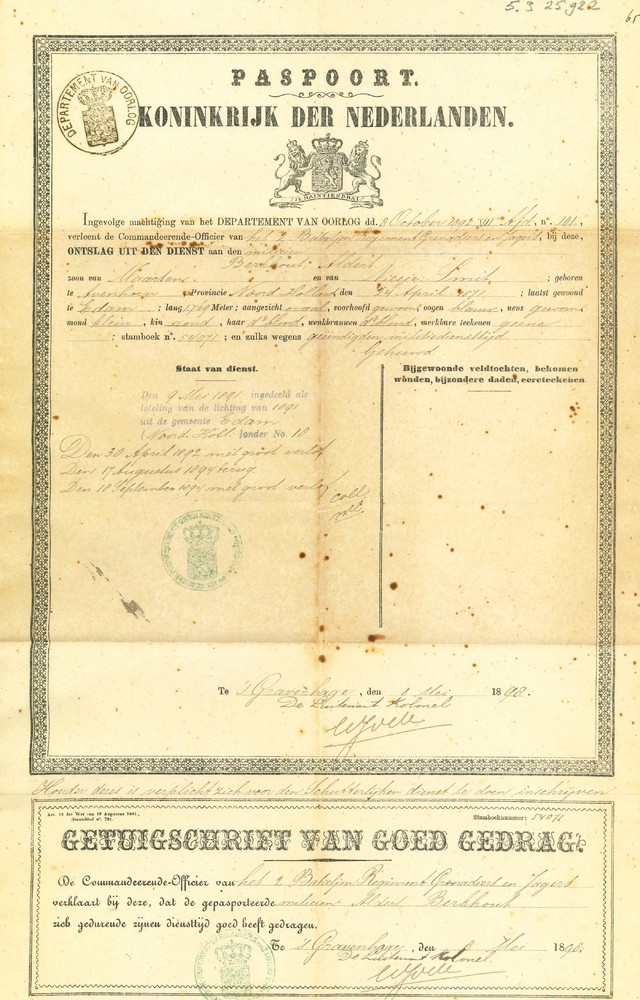 5.3 25.922
65
PASPOORT.
DEPARTEMENT VAN OORLOG
KONINKRIJK DER NEDERLANDEN.
JE MAINTIENDRAI
Ingevolge machtiging van het DEPARTEMENT VAN OORLOG dd. 8 October 1892 VII Afd. n°. 181,
verleent de Commandeerende-Officier van het 2 Bataljon Regiment Grenadiers en Jagers, bij deze,
ONTSLAG UIT DEN DIENST aan den milicien
Berkhout Aldert
zoon van Maarten en van Smit ; geboren
te Avenhorn Provincie Noord Holland den 24 April 1871 ; laatst gewoond
te Edam ; lang 1,760 Meter; aangezicht ovaal, voorhoofd gewoon, oogen blauw, neus gewoon
mond klein, kin rond, haar d° blond, wenkbrauwen d° blond, merkbare teekenen geene
; stamboek n°. 54071 ; en zulks wegens geëindigden militiediensttijd
Gehuwd
Staat van dienst.
Bijgewoonde veldtochten, bekomen
wonden, bijzondere daden, eereteekenen.
Den 9 Mei 1891 ingedeeld als
loteling van de lichting van 1891
uit de gemeente Edam
(Noord Holl.) onder No. 18
Den 30 April 1892 met groot verlof
Den 17 Augustus 1894 terug
Den 18 September 1894 met groot verlof
coll
Te 's Gravenhage, den 8 Mei 1898.
De Luitenant Kolonel
Houder dezes is verplicht zich voor den Schutterlijken dienst te doen inschrijven
Art. 11 der Wet van 19 Augustus 1861,
(Staatsblad n°. 72).
Stamboeknummer: 54071
GETUIGSCHRIFT VAN GOED GEDRAG.
De Commandeerende-Officier van het 2 Bataljon Regiment Grenadiers en Jagers
verklaart bij deze, dat de gepasporteerde milicien Aldert Berkhout
zich gedurende zijnen diensttijd goed heeft gedragen.
Te 's Gravenhage, den 8 Mei 1898.
De Luitenant Kolonel